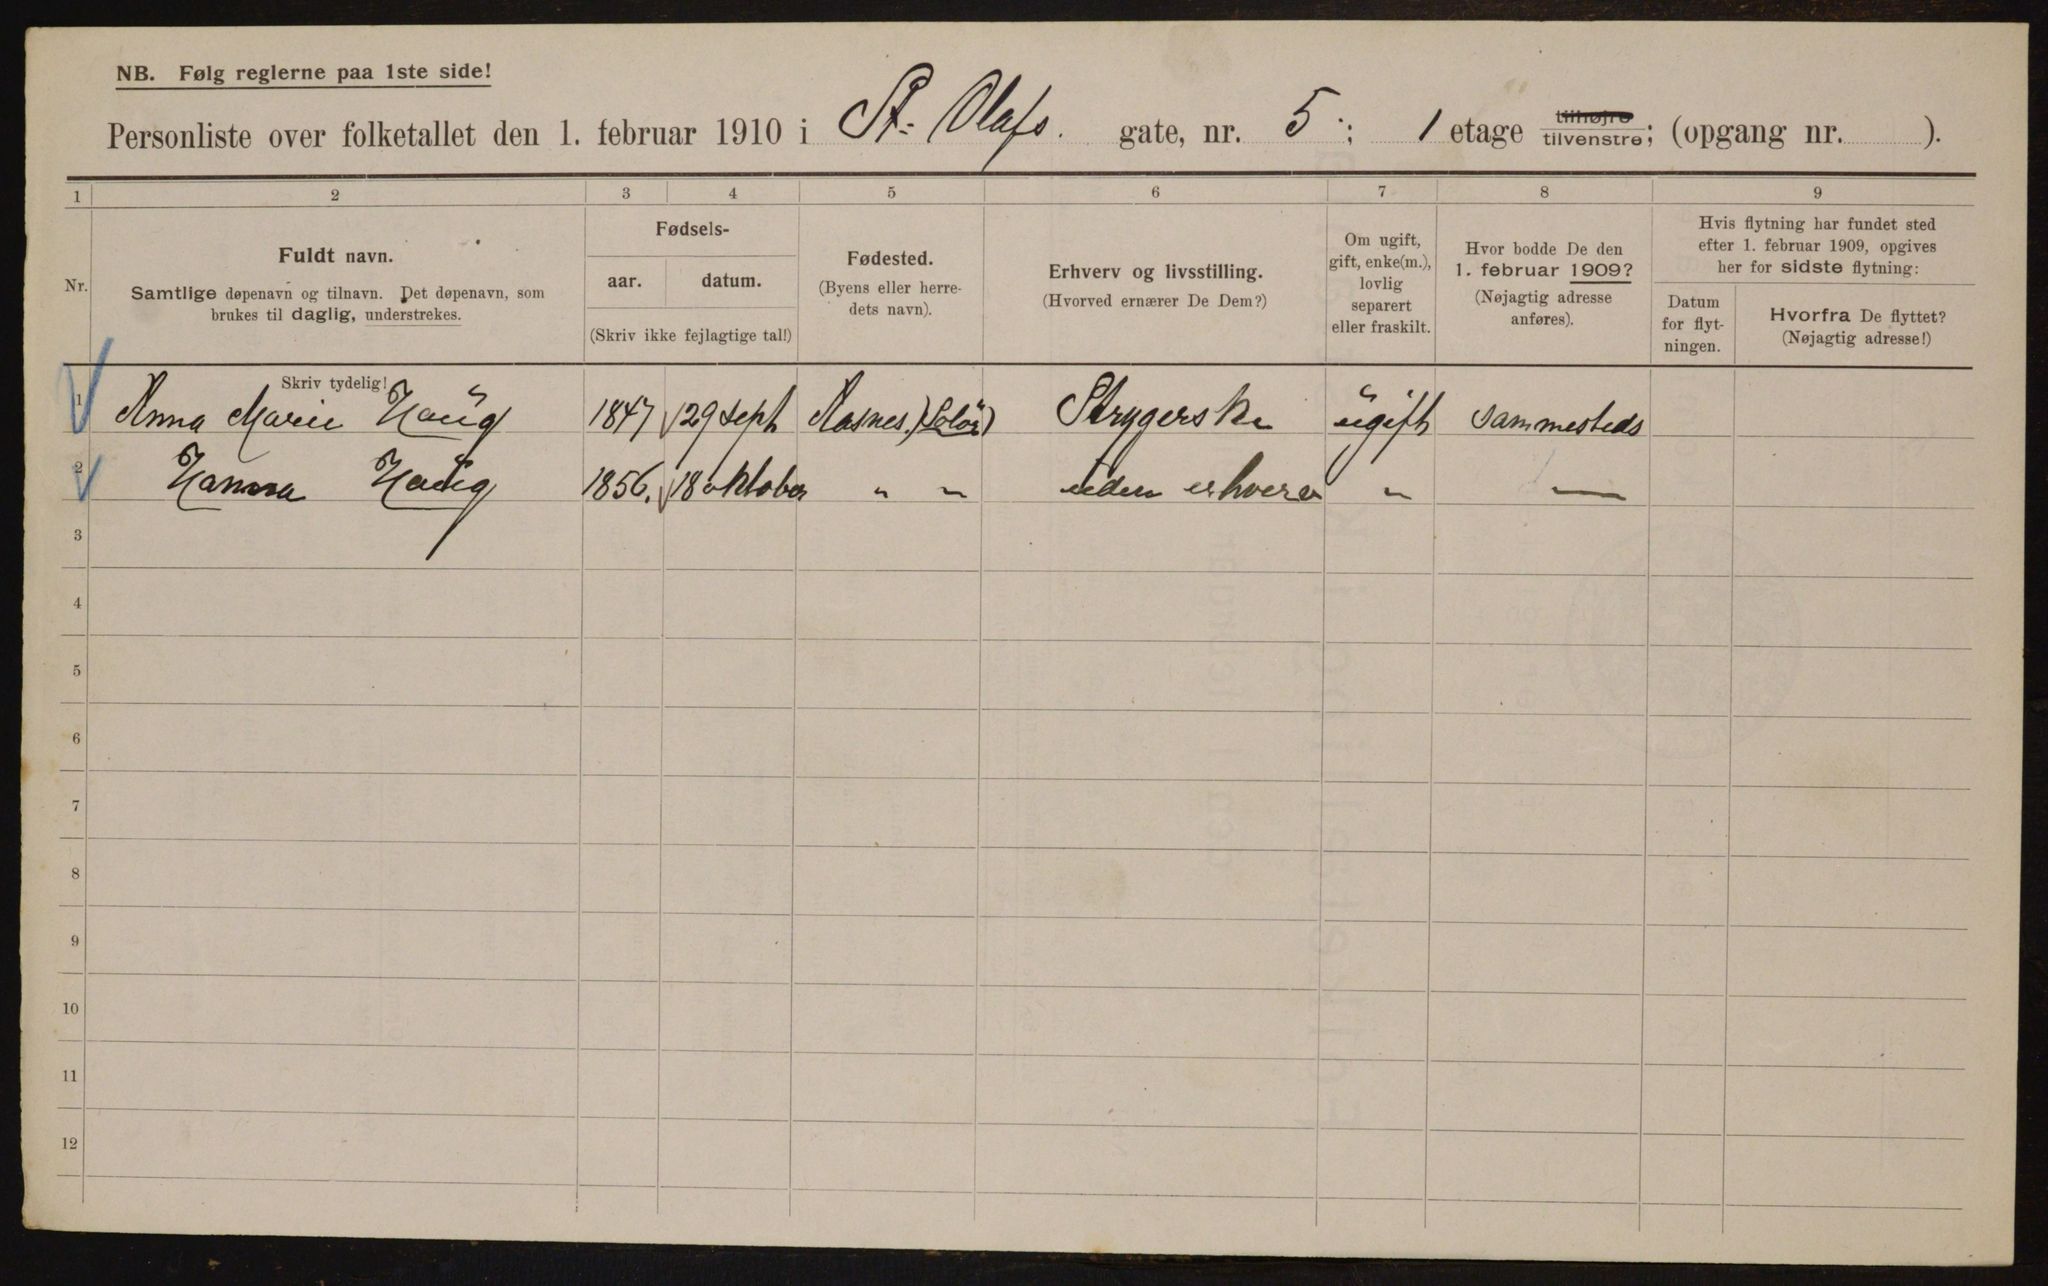 NB. Følg reglerne paa 1ste side!
Personliste over folketallet den 1. februar 1910 i St. Olafs. gate, nr. 5; 1 etage tilhøjre tilvenstre; (opgang nr. ).
1 2 3 4 5 6 7 8 9
Nr.
Fuldt navn.
Samtlige døpenavn og tilnavn. Det døpenavn, som
brukes til daglig, understrekes.
Skriv tydelig!
Fødsels-
aar. datum.
(Skriv ikke fejlagtige tal!)
Fødested.
(Byens eller herre-
dets navn).
Erhverv og livsstilling.
(Hvorved ernærer De Dem?)
Om ugift,
gift, enke(m.),
lovlig
separert
eller fraskilt.
Hvor bodde De den
1. februar 1909?
(Nøjagtig adresse
anføres).
Hvis flytning har fundet sted
efter 1. februar 1909, opgives
her for sidste flytning:
Datum
for flyt-
ningen.
Hvorfra De flyttet?
(Nøjagtig adresse!)
1 Anna Marie Haug 1847 29 sept Aasnes. (Solör) Strygerske ugift sammesteds
2 Hanna Haug 1856. 18 oktober " " uden erhverv " —
3
4
5
6
7
8
9
10
11
12